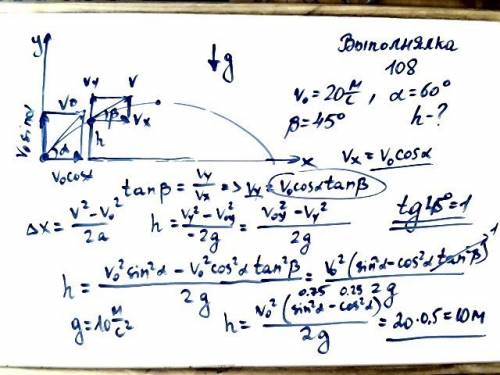 Выполнялка
108
y
↓g
v₀ = 20 м/с, α = 60°
β = 45° h - ?
v₀ sinα
v₀
vy
v
β
vx
h
α
v₀cosα
x
vx = v₀cosα
tanβ = vy/vx => vy = v₀cosα tanβ
tg45° = 1
Δx = (v² - v₀²)/2a
h = (vy² - v₀y²)/-2g = (v₀y² - vy²)/2g
h = (v₀² sin²α - v₀² cos²α tan²β)/2g = v₀² (sin²α - cos²α tan²β)/2g
1
0.75 0.25
g = 10 м/с²
h = v₀² (sin²α - cos²α)/2g = 20·0.5 = 10м